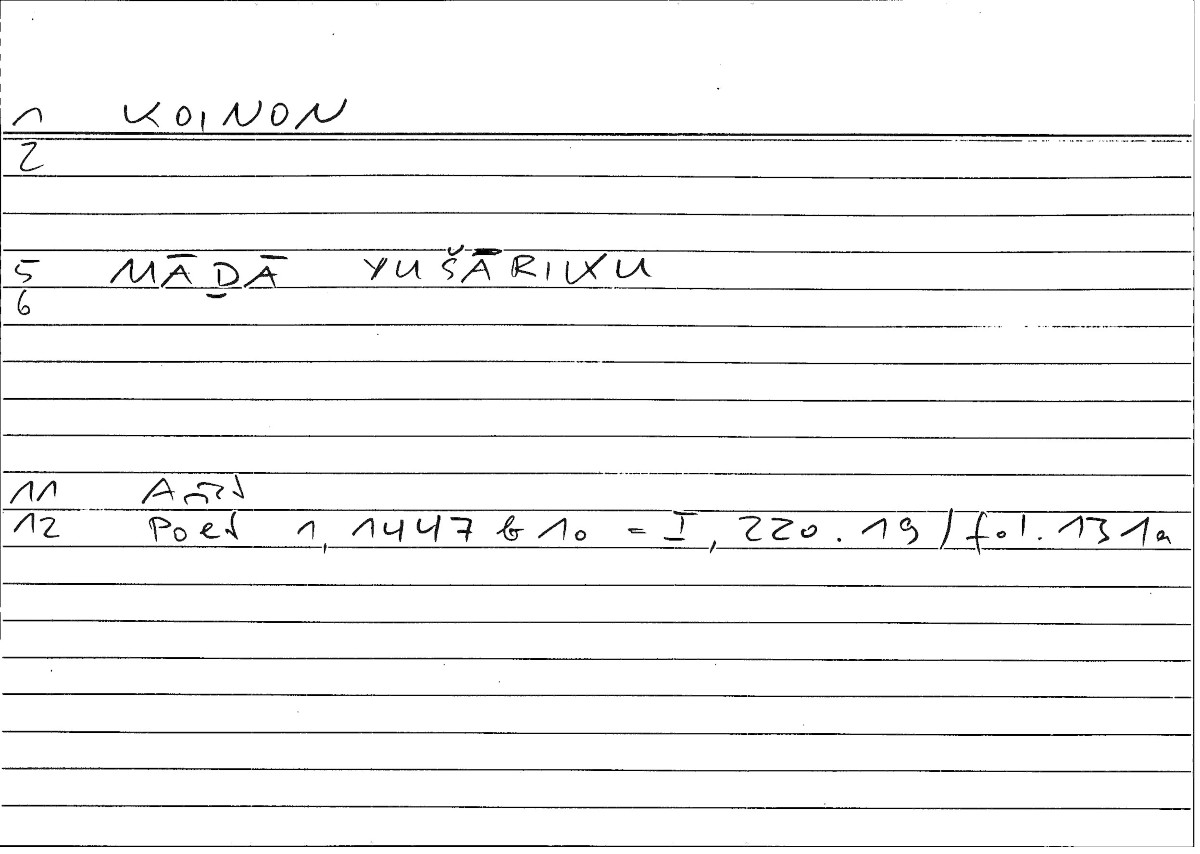 1 KOINON
2
5 MĀḎĀ YUŠĀRIKU
6
11 Arist
12 Poet 1, 1447 b 10 = I, 220.19 / fol. 131a